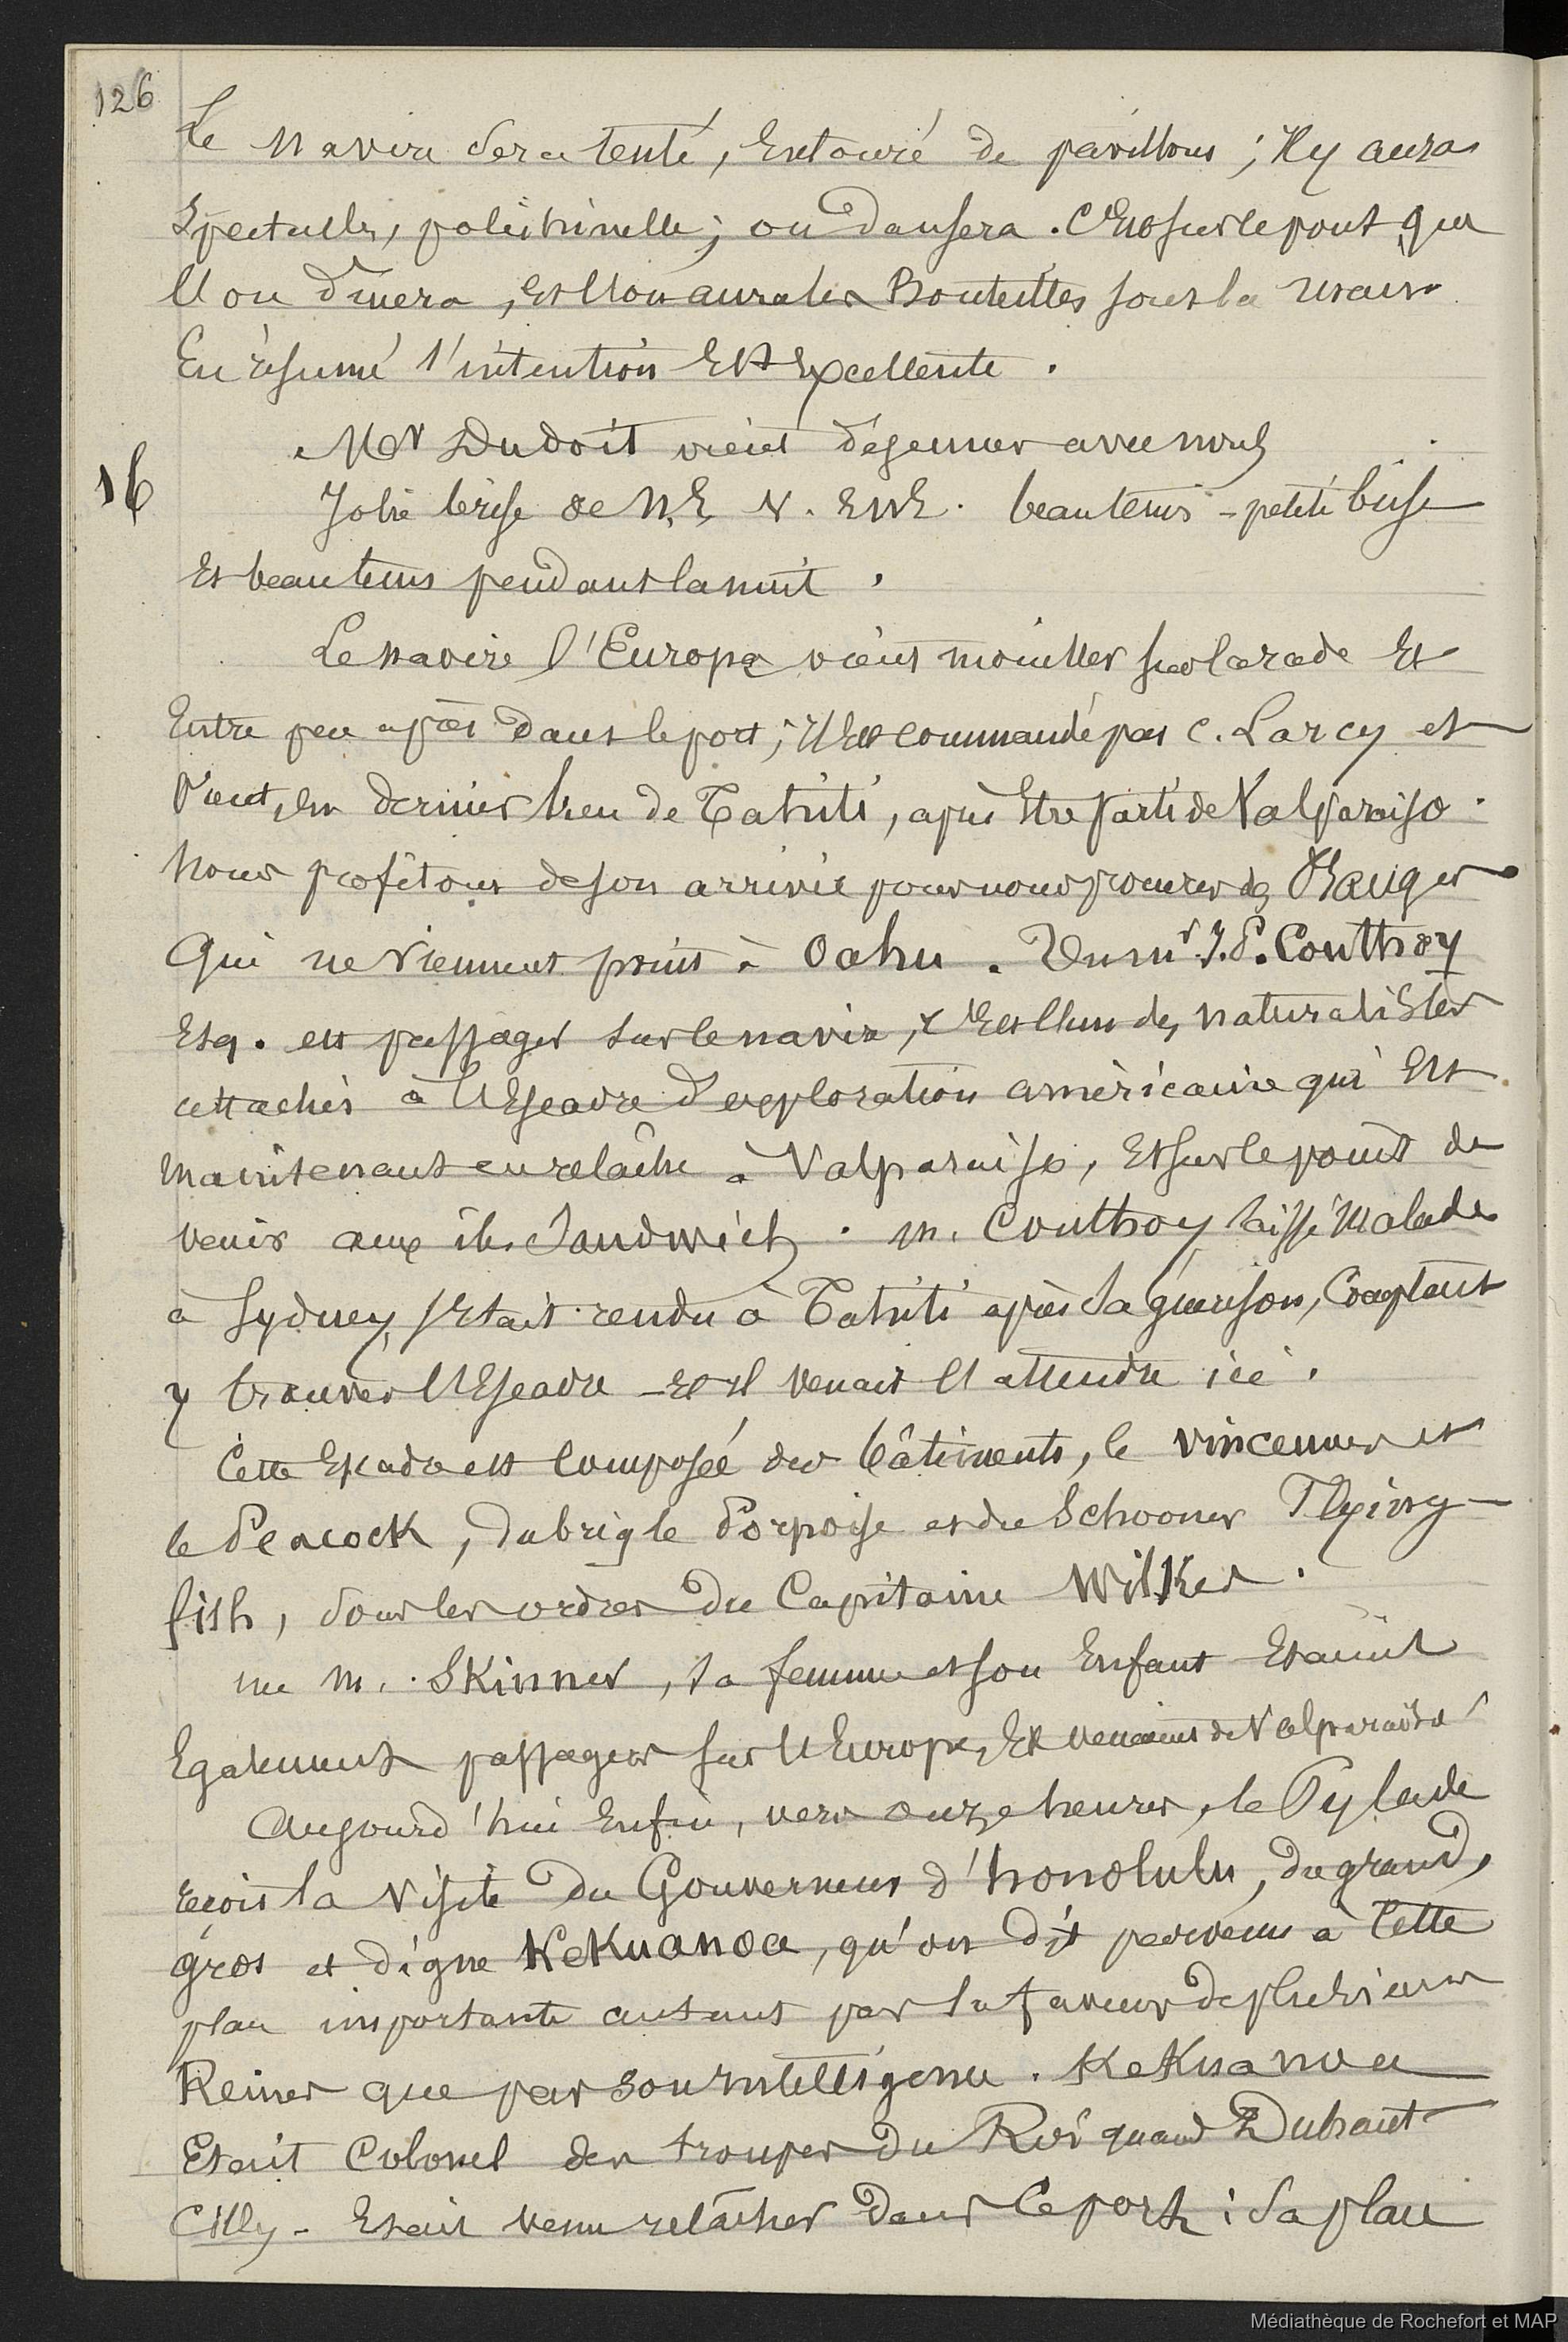 126
Le navire sera tenté, Entouré de pavillons ; Il y aura
Spectacle, polichinelle ; on dansera. C'Est sur le pont que
l'on dînera, Et l'on aura les Bouteilles sous la main
En résumé l'intention Est Excellente.
Mr Dudoit vient déjeuner avec nous
16
Jolie brise de N.E. N. ENE. beau tems - petite brise
Et beau tems pendant la nuit.
Le navire l'Europa vient mouiller sur la rade Et
Entre peu après dans le port ; Il Est commandé par C. Larcy et
Vient, En dernier lieu de Tahiti, après Etre parti de Valparaiso.
Nous profitons de son arrivée pour nous procurer des Oranges
Qui ne viennent point à Oahu. Un mr. J. P. Couthoy
Esq. est passager sur le navire, c'Est l'un des naturalistes
attachés à l'Escadre d'exploration américaine qui Est
maintenant en relâche à Valparaiso, Et sur le point de
venir aux îles Sandwich. M. Couthoy laissé malade
à Sydney, s'Etait rendu à Tahiti après sa guérison, Comptant
y trouver l'Escadre - Et il venait l'attendre ici.
Cette Escadre est composée des bâtiments, le Vincennes et
le Peacock, du brig le Porpoise et du Schooner Flying-
fish, sous les ordres du Capitaine Wilkes.
un M. Skinner, sa femme et son Enfant Etaient
Egalement passagers sur l'Europa, Et venaient de Valparaiso
Aujourd'hui Enfin, vers onze heures, le Pylade
reçoit la visite du Gouverneur d'honolulu, du grand,
gros et digne KeKuanoa, qu'on dit parvenu à Cette
place importante autant par la faveur de plusieurs
Reines que par son intelligence. KeKuanoa
Etait Colonel des troupes du Roi quand Duhaut
Cilly - Etait venu relâcher dans Ce port ; Sa place
Médiathèque de Rochefort et MAP